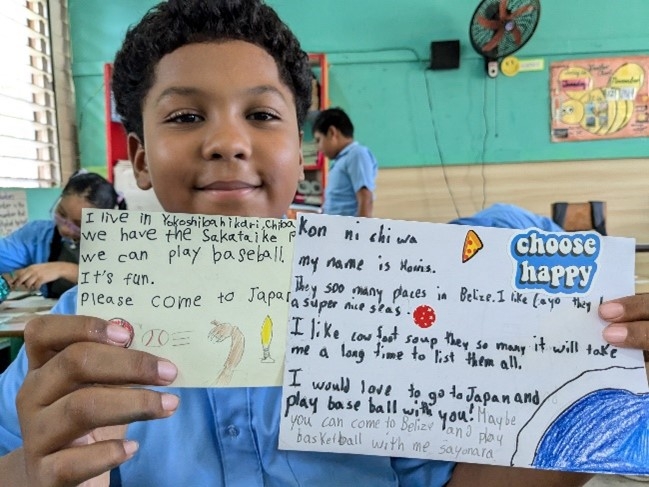 I live in Yokoshibahikari, Chiba
we have the Sakataike P
we can play baseball.
It's fun.
Please come to Japan
Kon ni chi wa
my name is Harris.
They soo many places in Belize. I like Cayo they
a super nice seas.
I like cow foot soup they so many it will take
me a long time to list them all.
I would love to go to Japan and
play base ball with you! Maybe
you can come to Belize and play
basketball with me sayonara
choose
happy